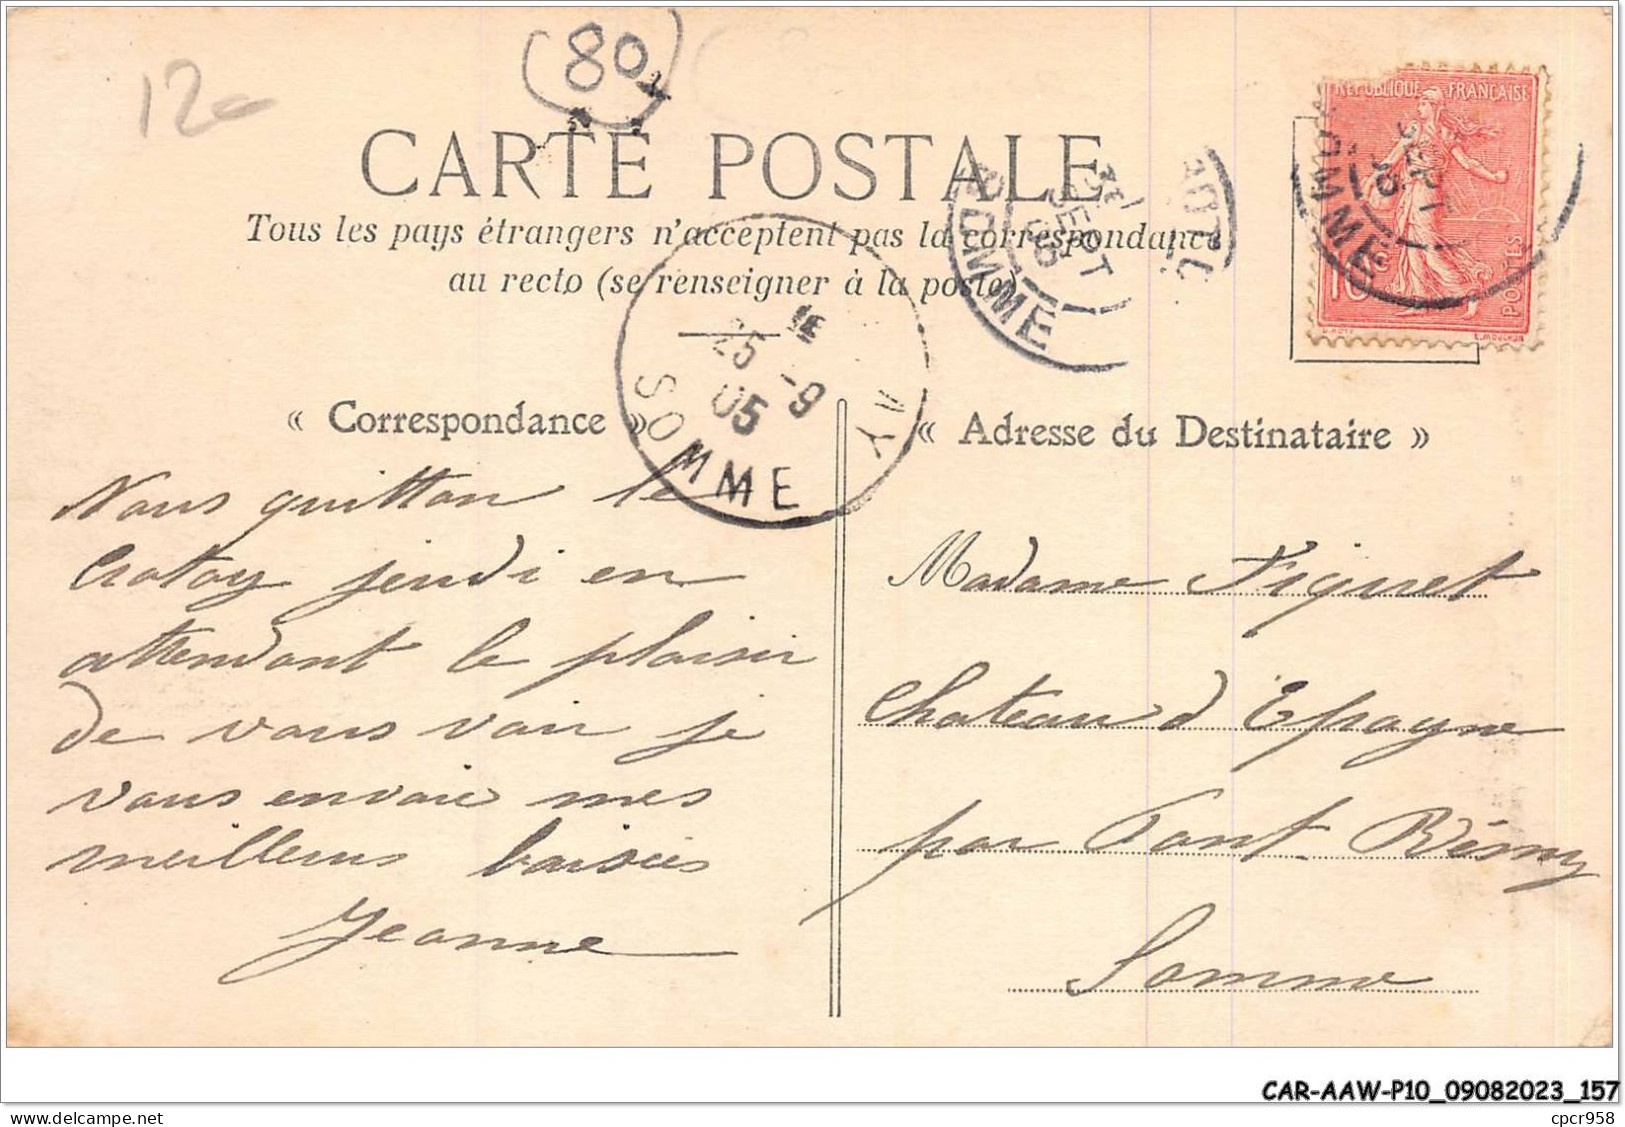 12e
(80)
CARTE POSTALE
Tous les pays étrangers n'acceptent pas la correspondance
au recto (se renseigner à la poste)
RÉPUBLIQUE FRANÇAISE
10c
POSTES
O.ROTY
E.MOUCHON
SOMME
SEPT
05
SOMME
SEPT
05
1E
25 -9
05
SOMME
« Correspondance »
Nous quitton le
Crotoy jeudi en
attendant le plaisir
de vous voir je
vous envoie mes
meilleurs baisées
Jeanne
« Adresse du Destinataire »
Madame Fiquet
Chateau d'Epagne
par Pont-Rémy
Somme
CAR-AAW-P10_09082023_157
cpcr958